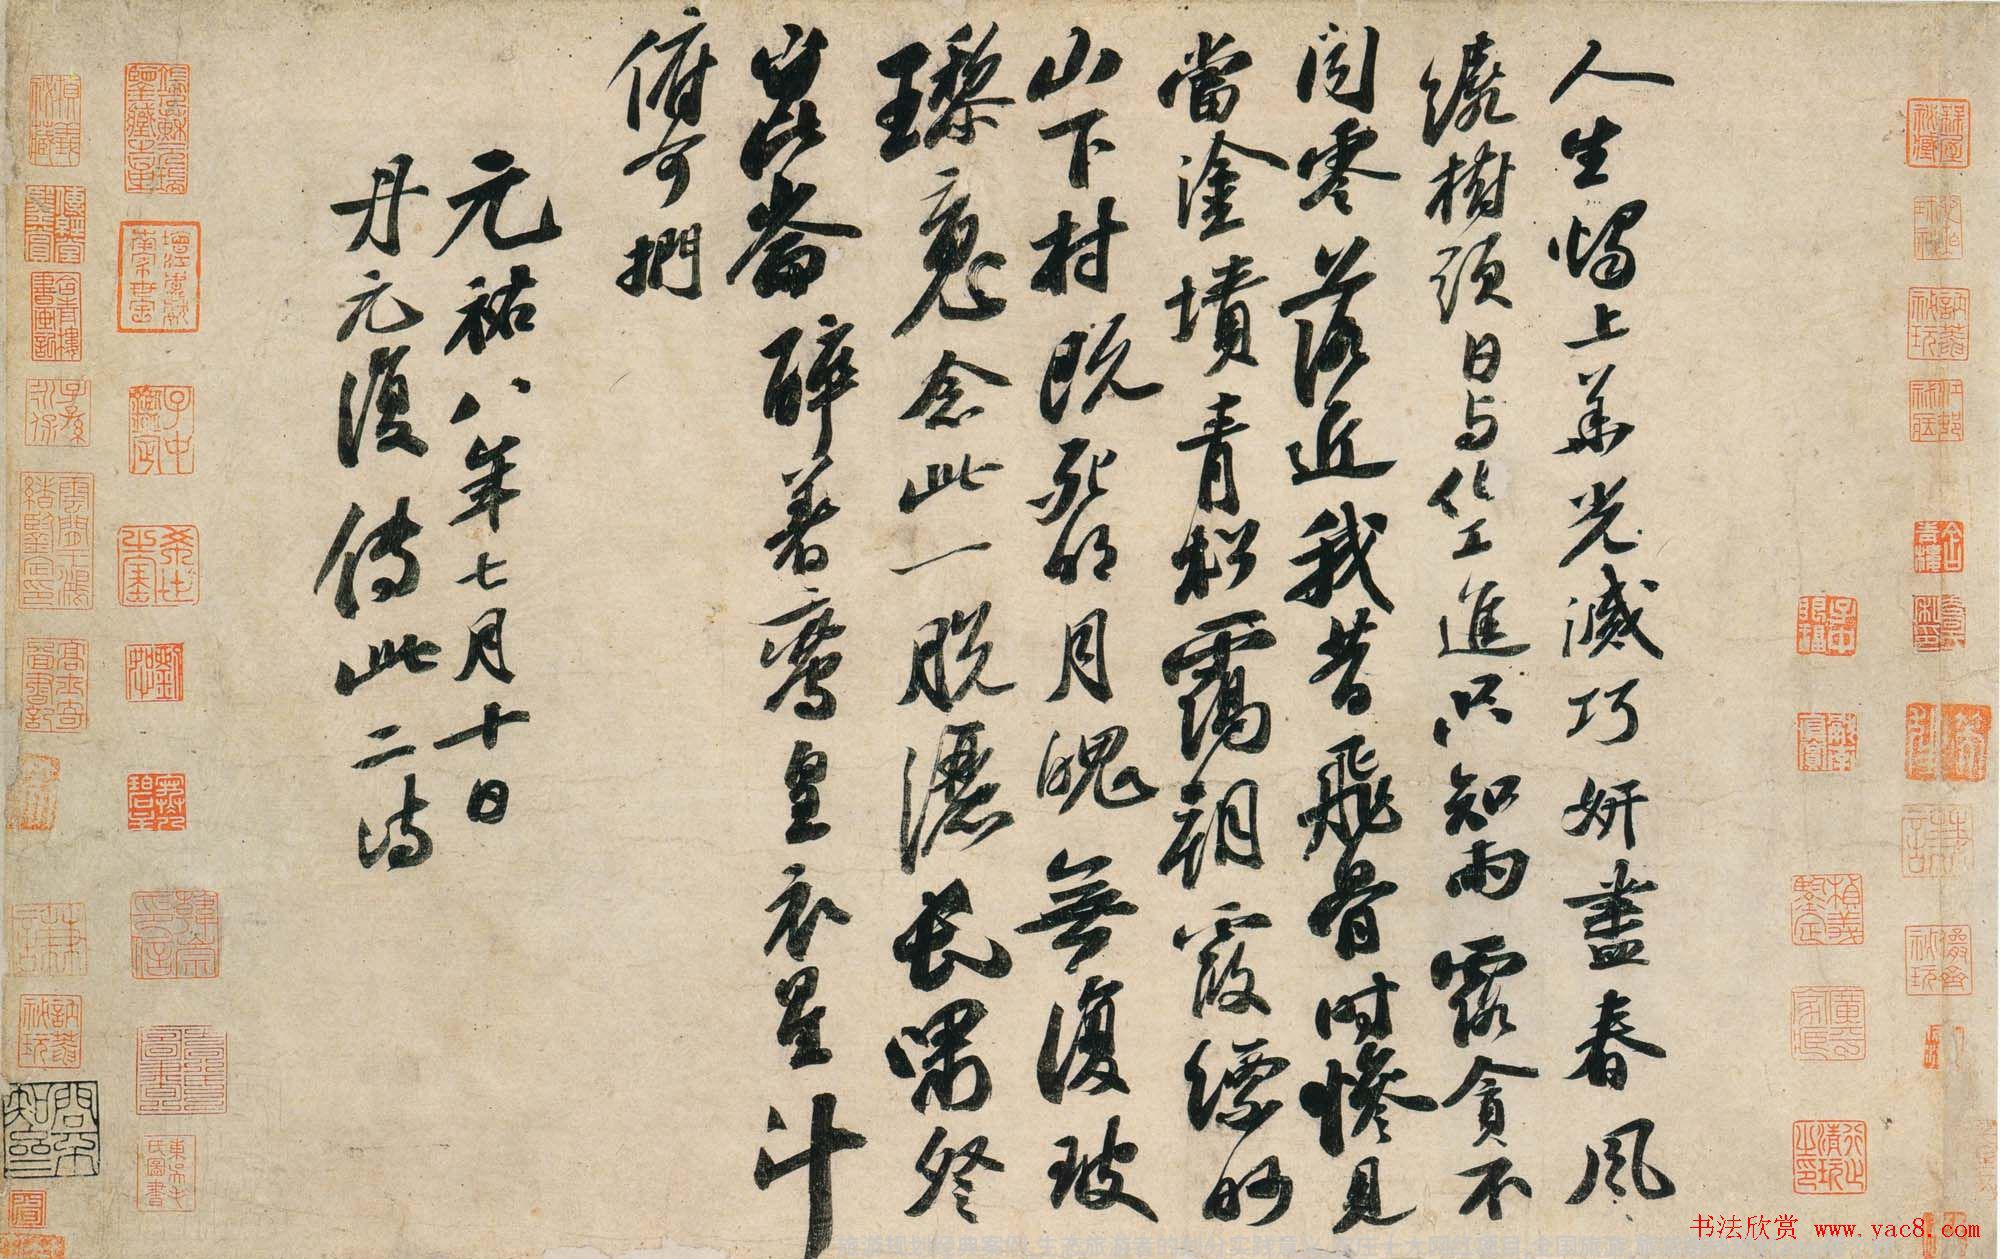 人生燭上華光滅巧妍盡春風
繞樹頭日与化工進只知雨露貪不
聞零落近我昔飛骨時慘見
當塗墳青松靄朝霞縹眇
山下村既死明月魄無復玻
瓈魂念此一脫灑長嘯祭
崑崙醉著鸞皇衣星斗
俯可捫
元祐八年七月十日
丹元復傳此二詩
書法欣赏 www.yac8.com